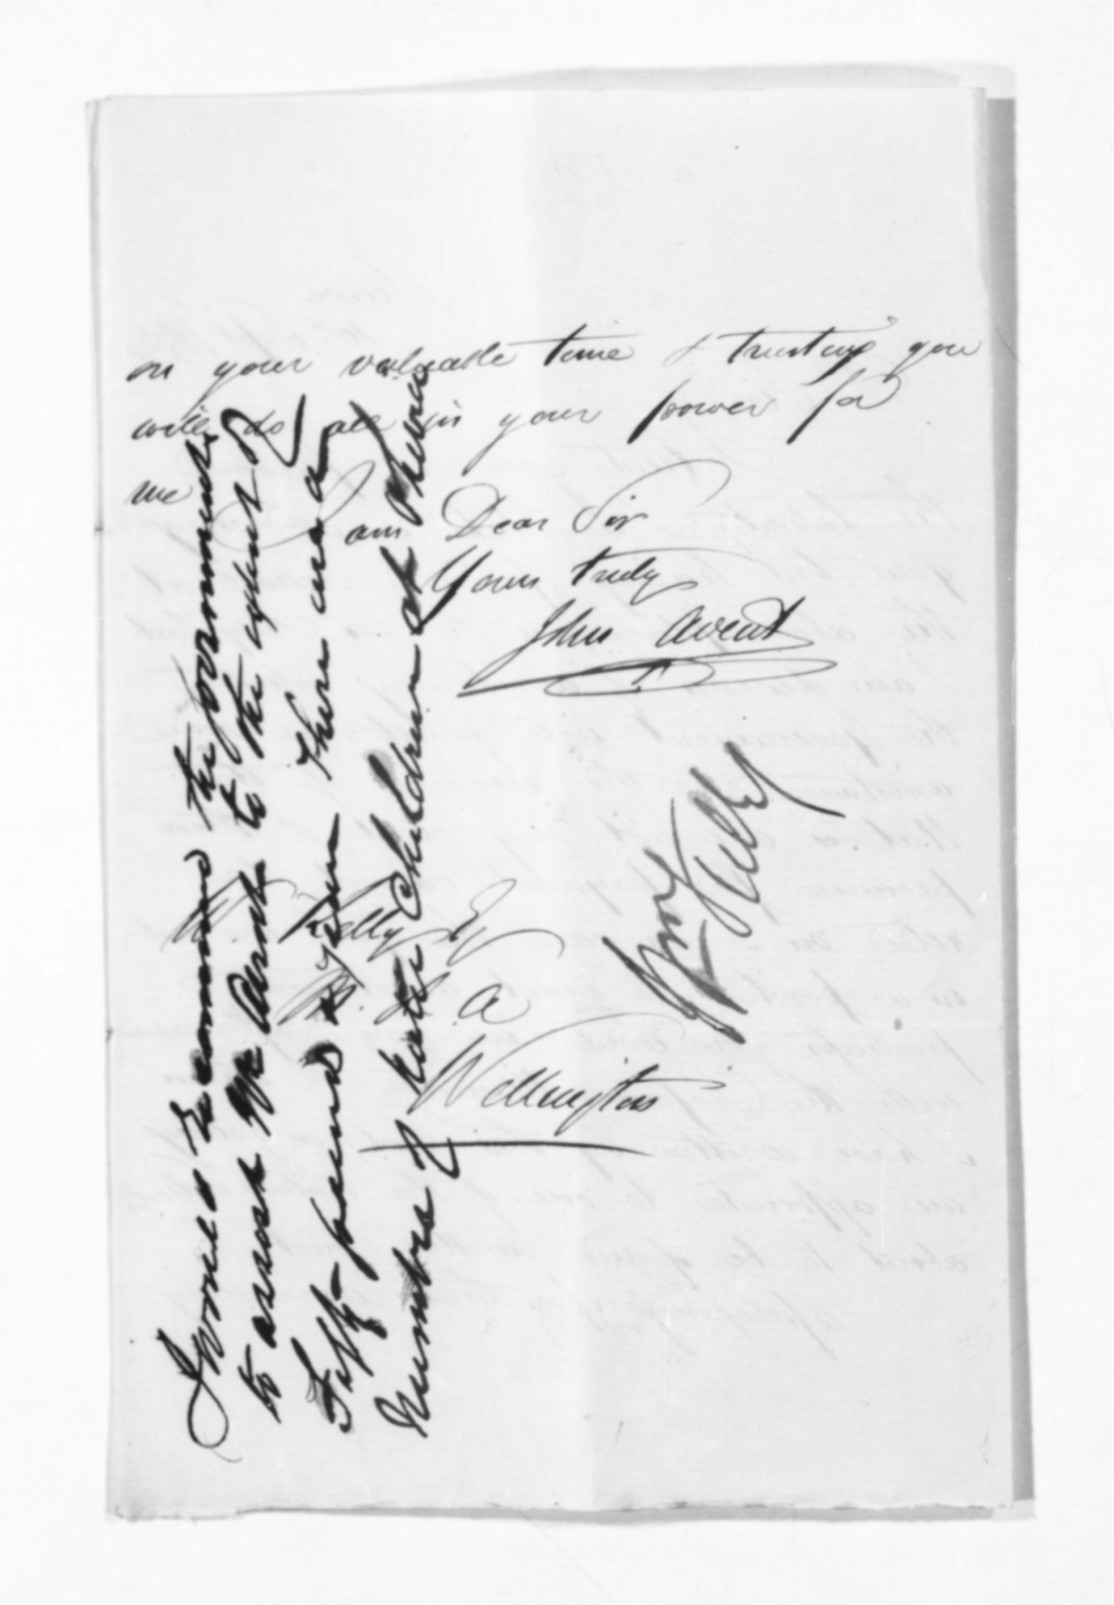 on your valuable time & trusting you
will do all in your power for
me
I am Dear Sir
Yours truly
John Avent
Wm Kelly Esq
M. H. A
Wellington
I would recommend the government
to assist Mr Arent to the extent of
Fifty pounds a year There are a
Number of Native Children at
Wm Kelly